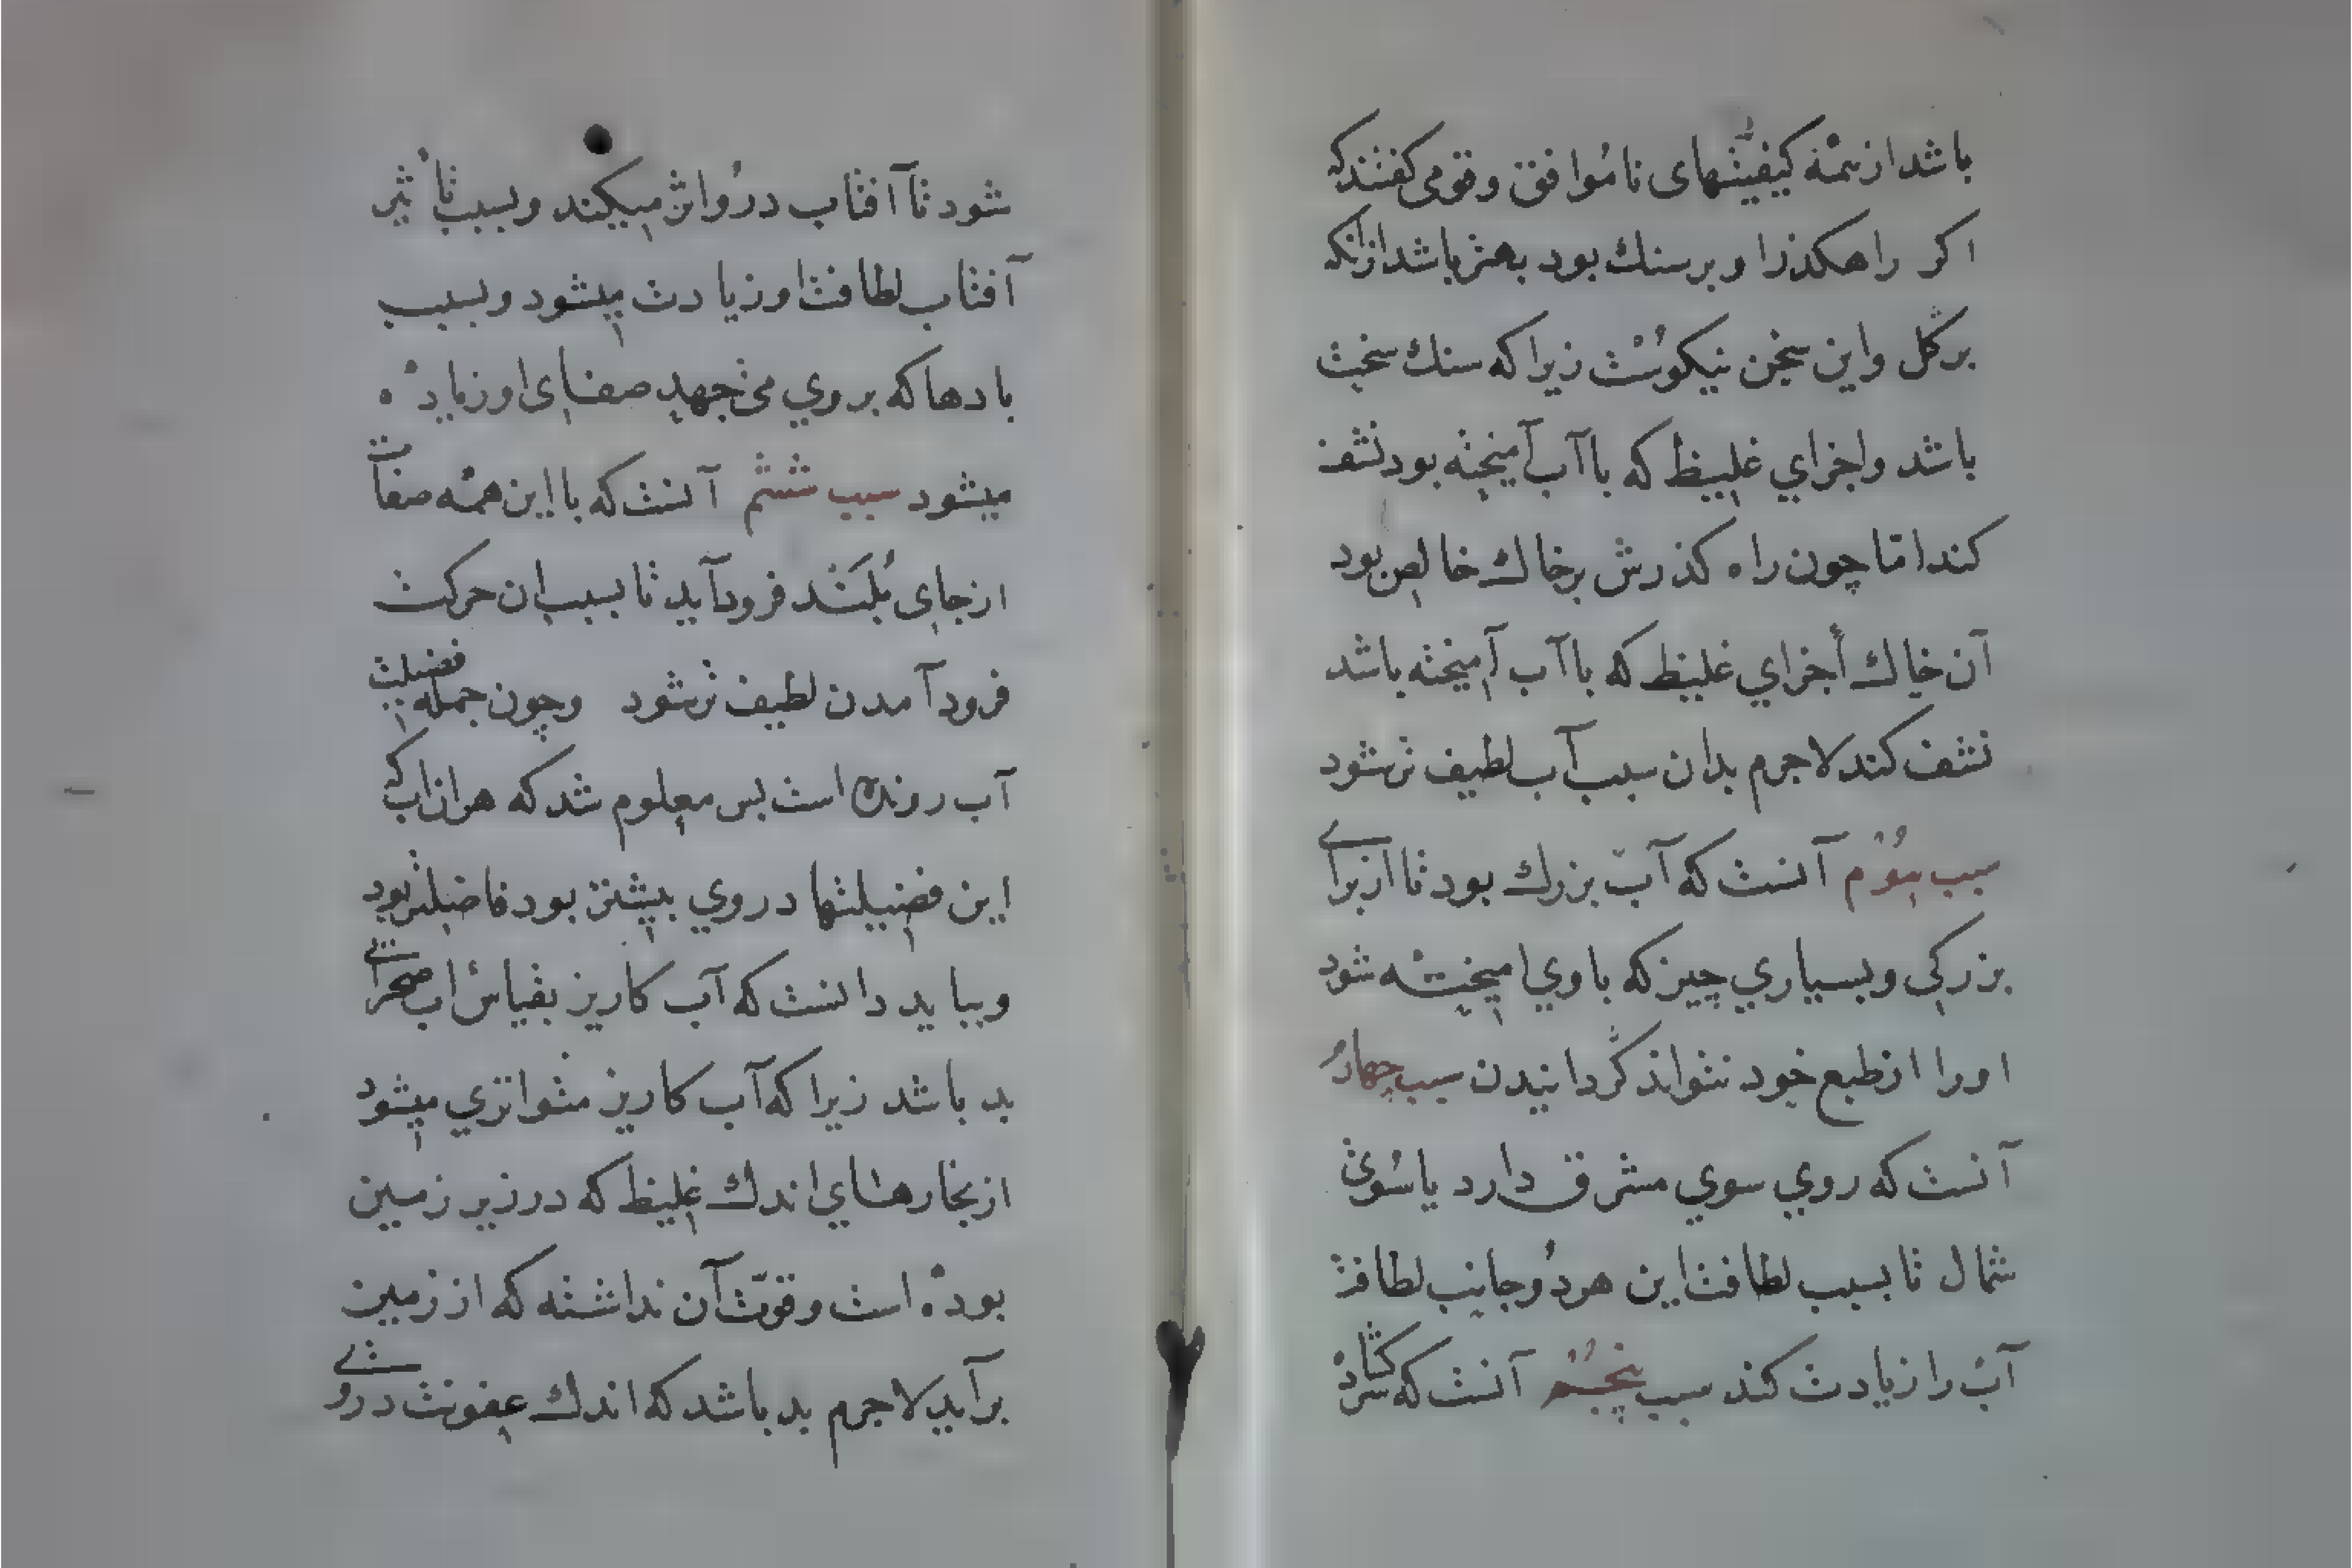 باشد از همه كيفيتهاى ناموافق وقومى كفتند كه
اكر راهكذر او بر سنك بود بهتر باشد ازانكه
بر كل واين سخن نيكوست زيرا كه سنك سخت
باشد واجزاي غليظ كه با آب آميخته بود نشف
كند اما چون راه كذرش بر خاك خالص بود
آن خاك أجزاي غليظ كه با آب آميخته باشد
نشف كند لاجرم بدان سبب آب لطيف تر شود
سبب سوم آنست كه آب بزرك بود تا از براے
بزركى وبسياري چيز كه با وي اميخته شود
اورا از طبع خود نتواند كردانيدن سبب چهارم
آنست كه روي سوي مشرق دارد يا سوى
شمال تا بسبب لطافت اين هر دو جانب لطافت
آب را زيادت كند سبب پنجم آنست كه كشاده
شود تا آفتاب درو اثر ميكند وبسبب تأثير
آفتاب لطافت او زيادت ميشود وبسبب
بادها كه بروي مى جهد صفاى او زياده
ميشود سبب ششم آنست كه با اين همه صفات
از جاى بلند فرود آيد تا بسبب ان حركت
فرود آمدن لطيف تر شود وچون جمله فضيلت
آب رونده است پس معلوم شد كه هر ان اب كه
اين فضيلتها در وي بيشتر بود فاضلتر بود
وببايد دانست كه آب كاريز بقياس اب صحراے
بد باشد زيرا كه آب كاريز متواتري ميشود
از بخارهاي اندك غليظ كه در زير زمين
بوده است وقوت آن نداشته كه از زمين
برآيد لاجرم بد باشد كه اندك عفونت درو